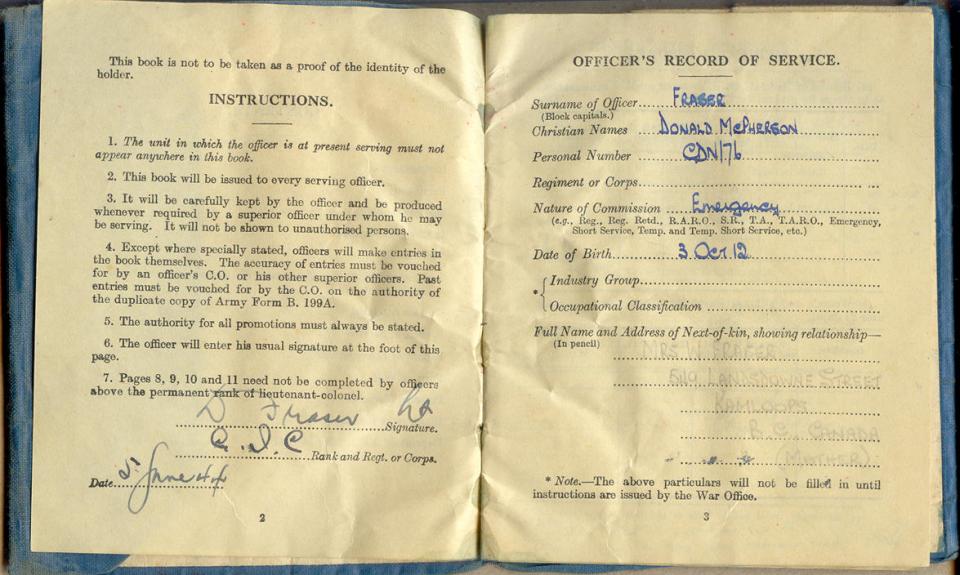 This book is not to be taken as a proof of the identity of the
holder.
INSTRUCTIONS.
1. The unit in which the officer is at present serving must not
appear anywhere in this book.
2. This book will be issued to every serving officer.
3. It will be carefully kept by the officer and be produced
whenever required by a superior officer under whom he may
be serving. It will not be shown to unauthorised persons.
4. Except where specially stated, officers will make entries in
the book themselves. The accuracy of entries must be vouched
for by an officer's C.O. or his other superior officers. Past
entries must be vouched for by the C.O. on the authority of
the duplicate copy of Army Form B. 199A.
5. The authority for all promotions must always be stated.
6. The officer will enter his usual signature at the foot of this
page.
7. Pages 8, 9, 10 and 11 need not be completed by officers
above the permanent rank of lieutenant-colonel.
D Fraser Lt Signature.
C.I.C Rank and Regt. or Corps.
Date June 44
2
OFFICER'S RECORD OF SERVICE.
Surname of Officer FRASER
(Block capitals.)
Christian Names DONALD McPHERSON
Personal Number CDN/176
Regiment or Corps
Nature of Commission Emergency
(e.g., Reg., Reg. Retd., R.A.R.O., S.R., T.A., T.A.R.O., Emergency,
Short Service, Temp. and Temp. Short Service, etc.)
Date of Birth 3 Oct 12
* Industry Group
Occupational Classification
Full Name and Address of Next-of-kin, showing relationship—
(In pencil)
MRS W FRASER
540 LANSDOWNE STREET
KAMLOOPS
B.C. CANADA
(MOTHER)
* Note.—The above particulars will not be filled in until
instructions are issued by the War Office.
3